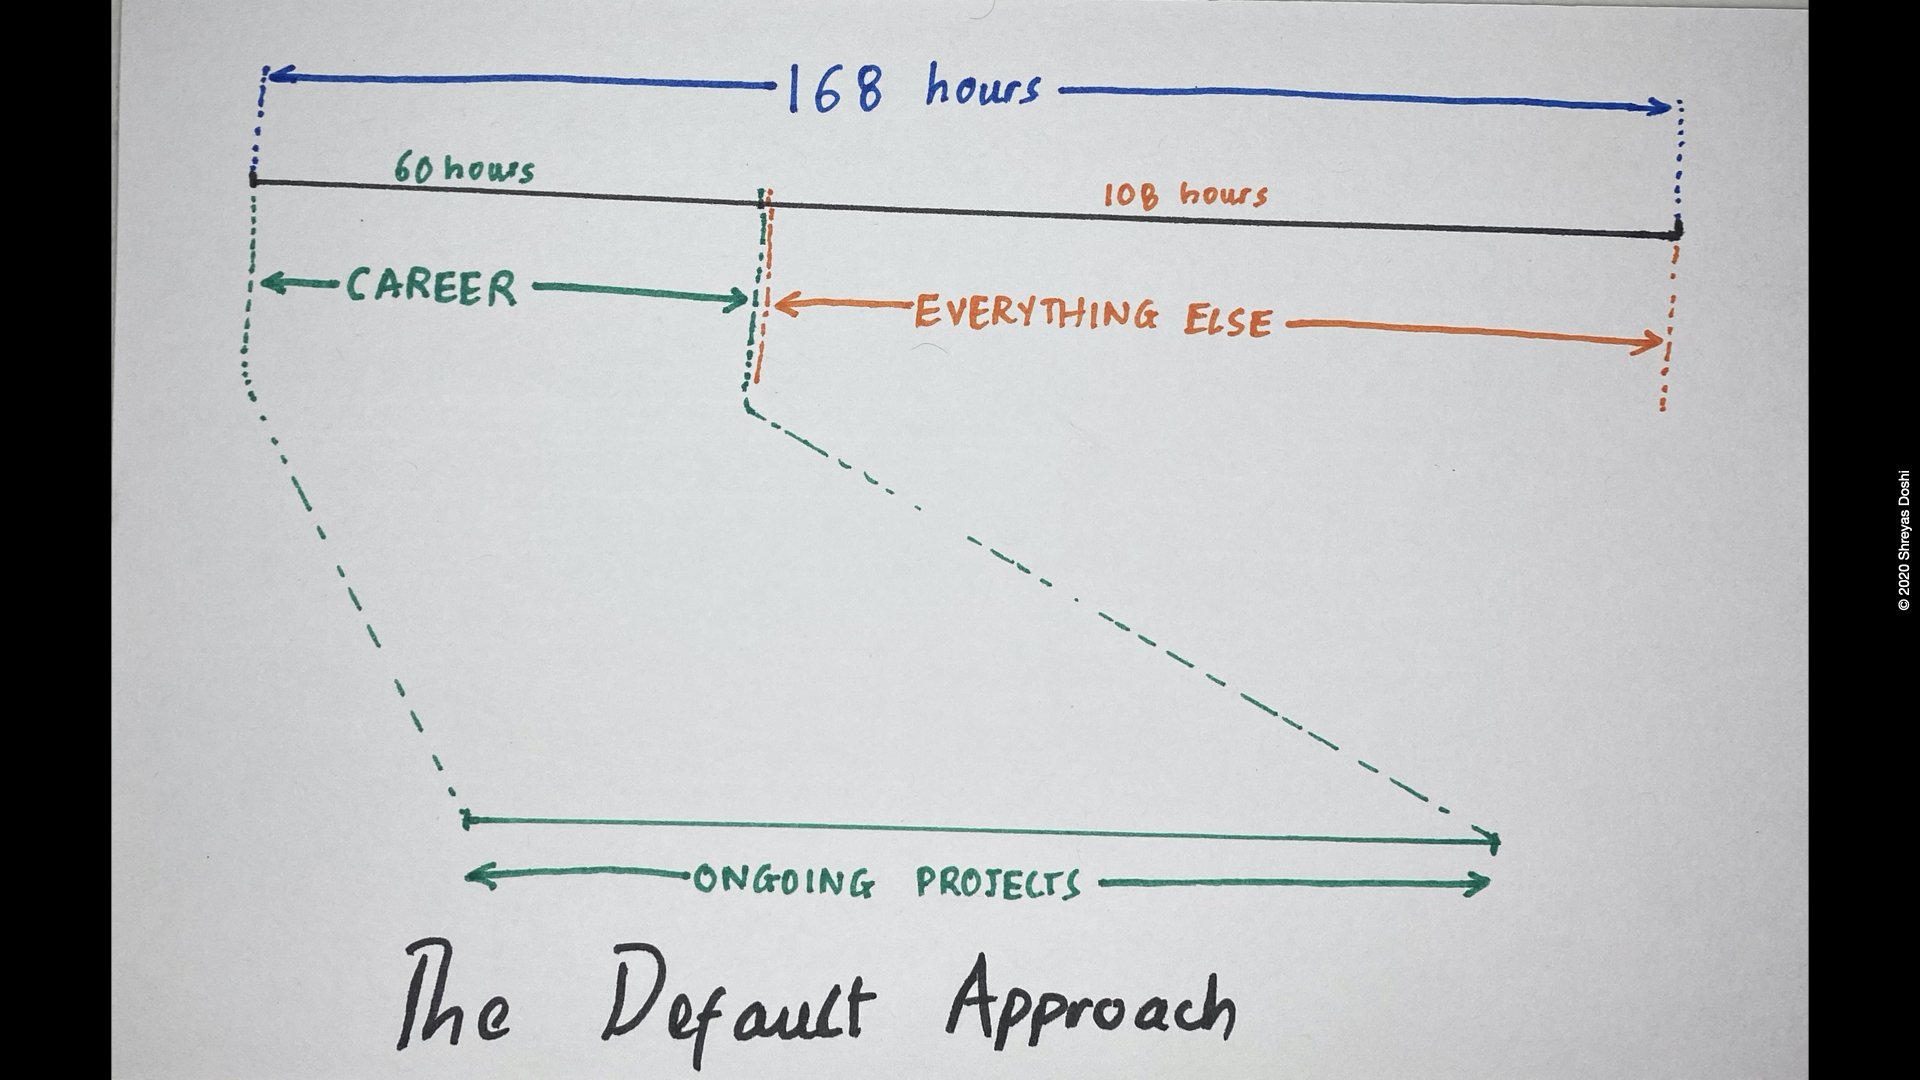 168 hours
60 hours
108 hours
CAREER
EVERYTHING ELSE
ONGOING PROJECTS
The Default Approach
© 2020 Shreyas Doshi